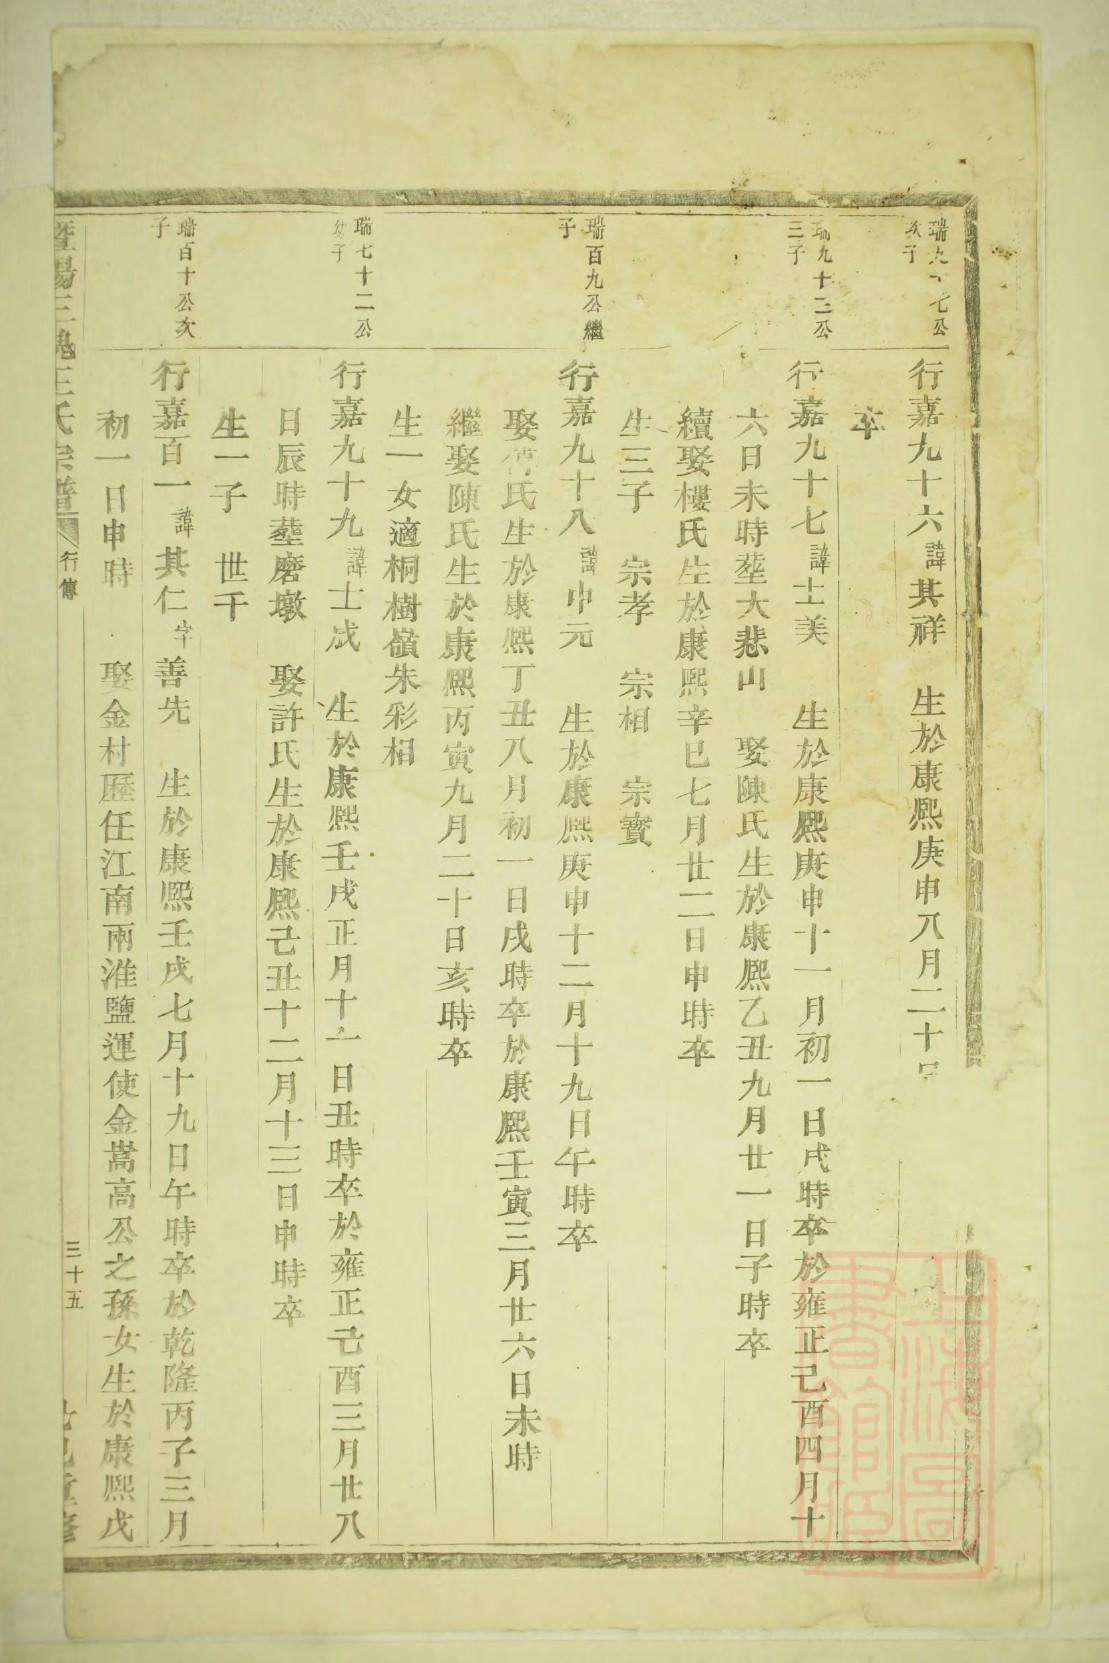 瑞九十七公
次子
行嘉九十六諱其祥 生於康熙庚申八月二十日
卒
瑞九十三公
三子
行嘉九十七諱士美 生於康熙庚申十一月初一日戌時卒於雍正己酉四月十
六日未時塟大悲山 娶陳氏生於康熙乙丑九月廿一日子時卒
續娶樓氏生於康熙辛巳七月廿二日申時卒
生三子 宗孝 宗相 宗寳
瑞百九公繼
子
行嘉九十八諱中元 生於康熙庚申十二月十九日午時卒
娶傅氏生於康熙丁丑八月初一日戌時卒於康熙壬寅三月廿六日未時
繼娶陳氏生於康熙丙寅九月二十日亥時卒
生一女適桐樹嶺朱彩相
瑞七十二公
幼子
行嘉九十九諱士成 生於康熙壬戌正月十一日丑時卒於雍正己酉三月廿八
日辰時塟磨墩 娶許氏生於康熙己丑十二月十三日申時卒
生一子 世千
瑞百十公次
子
行嘉百一諱其仁字善先 生於康熙壬戌七月十九日午時卒於乾隆丙子三月
初一日申時 娶金村歷任江南兩淮鹽運使金嵩高公之孫女生於康熙戊
暨陽三槐王氏宗譜 行傳 三十五 重修
上海圖
書館藏